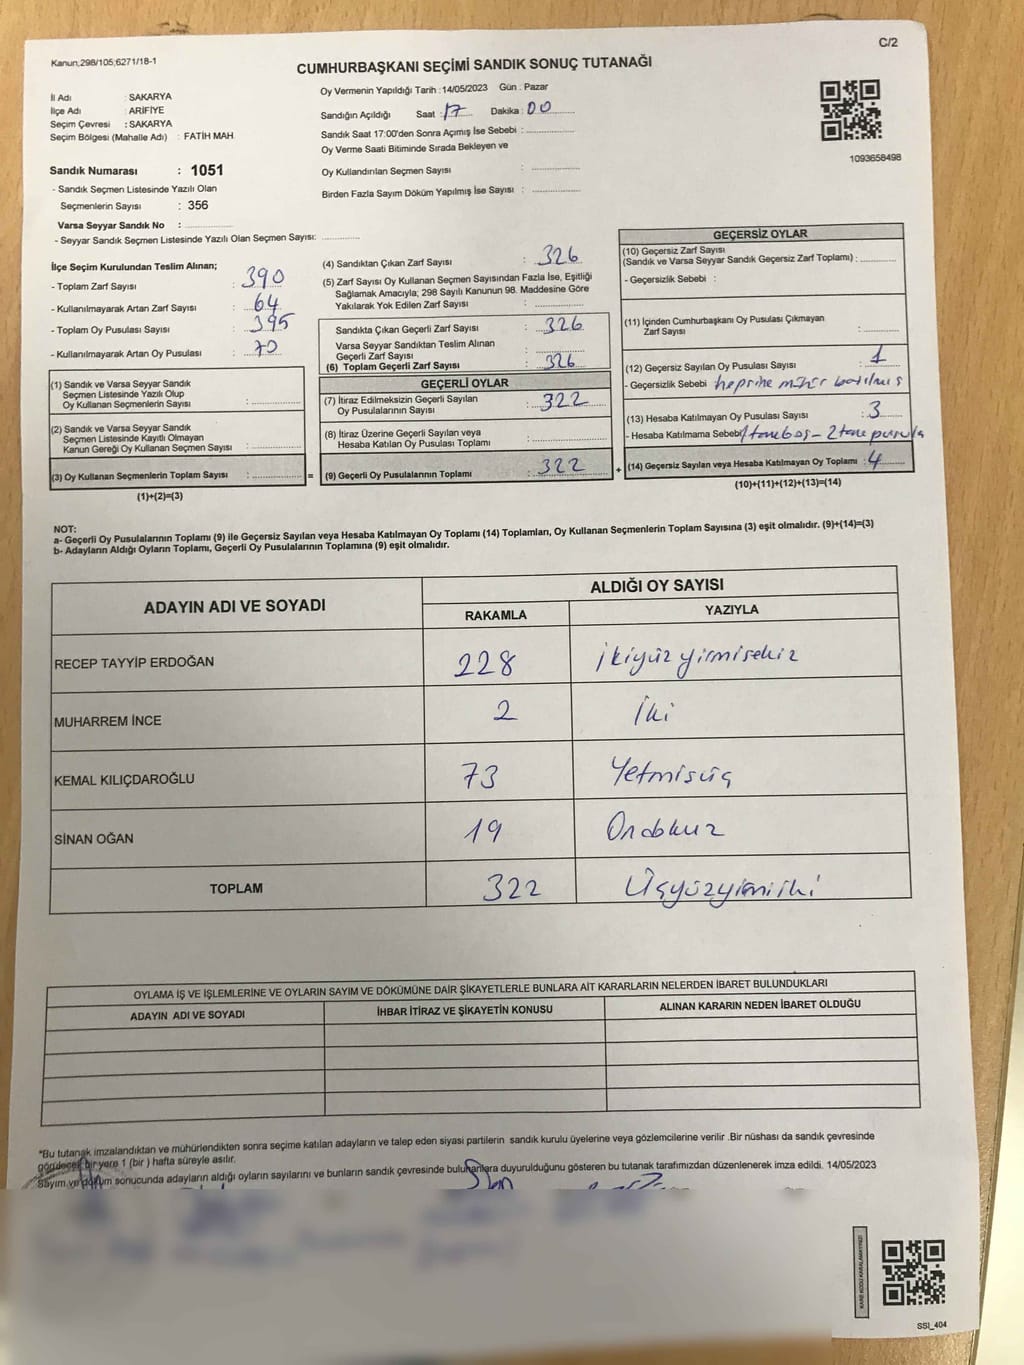 C/2
Kanun;298/105;6271/18-1
CUMHURBAŞKANI SEÇİMİ SANDIK SONUÇ TUTANAĞI
İl Adı : SAKARYA
İlçe Adı : ARİFİYE
Seçim Çevresi : SAKARYA
Seçim Bölgesi (Mahalle Adı) : FATİH MAH.
Oy Vermenin Yapıldığı Tarih : 14/05/2023 Gün : Pazar
Sandığın Açıldığı Saat : 17 Dakika : 00
Sandık Saat 17:00'den Sonra Açımış İse Sebebi :
Oy Verme Saati Bitiminde Sırada Bekleyen ve
Oy Kullandırılan Seçmen Sayısı :
Birden Fazla Sayım Döküm Yapılmış İse Sayısı :
1093658498
Sandık Numarası : 1051
- Sandık Seçmen Listesinde Yazılı Olan
Seçmenlerin Sayısı : 356
Varsa Seyyar Sandık No :
- Seyyar Sandık Seçmen Listesinde Yazılı Olan Seçmen Sayısı:
İlçe Seçim Kurulundan Teslim Alınan;
- Toplam Zarf Sayısı : 390
- Kullanılmayarak Artan Zarf Sayısı : 64
- Toplam Oy Pusulası Sayısı : 395
- Kullanılmayarak Artan Oy Pusulası : 70
(1) Sandık ve Varsa Seyyar Sandık
Seçmen Listesinde Yazılı Olup
Oy Kullanan Seçmenlerin Sayısı :
(2) Sandık ve Varsa Seyyar Sandık
Seçmen Listesinde Kayıtlı Olmayan
Kanun Gereği Oy Kullanan Seçmen Sayısı :
(3) Oy Kullanan Seçmenlerin Toplam Sayısı : =
(1)+(2)=(3)
(4) Sandıktan Çıkan Zarf Sayısı : 326
(5) Zarf Sayısı Oy Kullanan Seçmen Sayısından Fazla İse, Eşitliği
Sağlamak Amacıyla; 298 Sayılı Kanunun 98. Maddesine Göre
Yakılarak Yok Edilen Zarf Sayısı :
Sandıkta Çıkan Geçerli Zarf Sayısı : 326
Varsa Seyyar Sandıktan Teslim Alınan
Geçerli Zarf Sayısı :
(6) Toplam Geçerli Zarf Sayısı : 326
GEÇERLİ OYLAR
(7) İtiraz Edilmeksizin Geçerli Sayılan
Oy Pusulalarının Sayısı : 322
(8) İtiraz Üzerine Geçerli Sayılan veya
Hesaba Katılan Oy Pusulası Toplamı :
(9) Geçerli Oy Pusulalarının Toplamı : 322 +
GEÇERSİZ OYLAR
(10) Geçersiz Zarf Sayısı
(Sandık ve Varsa Seyyar Sandık Geçersiz Zarf Toplamı) :
- Geçersizlik Sebebi :
(11) İçinden Cumhurbaşkanı Oy Pusulası Çıkmayan
Zarf Sayısı :
(12) Geçersiz Sayılan Oy Pusulası Sayısı : 1
- Geçersizlik Sebebi hepsine mühür basılmış
(13) Hesaba Katılmayan Oy Pusulası Sayısı : 3
- Hesaba Katılmama Sebebi 1 tane boş - 2 tane pusula
(14) Geçersiz Sayılan veya Hesaba Katılmayan Oy Toplamı : 4
(10)+(11)+(12)+(13)=(14)
NOT:
a- Geçerli Oy Pusulalarının Toplamı (9) ile Geçersiz Sayılan veya Hesaba Katılmayan Oy Toplamı (14) Toplamları, Oy Kullanan Seçmenlerin Toplam Sayısına (3) eşit olmalıdır. (9)+(14)=(3)
b- Adayların Aldığı Oyların Toplamı, Geçerli Oy Pusulalarının Toplamına (9) eşit olmalıdır.
ADAYIN ADI VE SOYADI ALDIĞI OY SAYISI
RAKAMLA YAZIYLA
RECEP TAYYİP ERDOĞAN 228 İkiyüz yirmisekiz
MUHARREM İNCE 2 İki
KEMAL KILIÇDAROĞLU 73 Yetmişüç
SİNAN OĞAN 19 Ondokuz
TOPLAM 322 Üçyüzyirmiiki
OYLAMA İŞ VE İŞLEMLERİNE VE OYLARIN SAYIM VE DÖKÜMÜNE DAİR ŞİKAYETLERLE BUNLARA AİT KARARLARIN NELERDEN İBARET BULUNDUKLARI
ADAYIN ADI VE SOYADI İHBAR İTİRAZ VE ŞİKAYETİN KONUSU ALINAN KARARIN NEDEN İBARET OLDUĞU
*Bu tutanak imzalandıktan ve mühürlendikten sonra seçime katılan adayların ve talep eden siyasi partilerin sandık kurulu üyelerine veya gözlemcilerine verilir .Bir nüshası da sandık çevresinde
görülecek bir yere 1 (bir ) hafta süreyle asılır.
Sayım ve döküm sonucunda adayların aldığı oyların sayılarını ve bunların sandık çevresinde bulunanlara duyurulduğunu gösteren bu tutanak tarafımızdan düzenlenerek imza edildi. 14/05/2023
KARE KODU KARALAMAYINIZ!
SSI_404